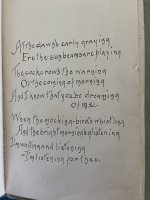 At the dawn's early graying
Ere the sunbeams are playing
The cock crows the warning
Of the coming of morning
And I know that you're dreaming
Of me.
When the mocking-birds whistling
And the bright morning's glistening
I'm waiting and listening
-I'm listening for thee.